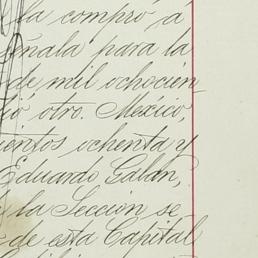 la compró a
eñala para la
de mil ochocien
dió otro. México,
ientos ochenta y
Eduardo Galán,
la Seccion se
de esta Capital